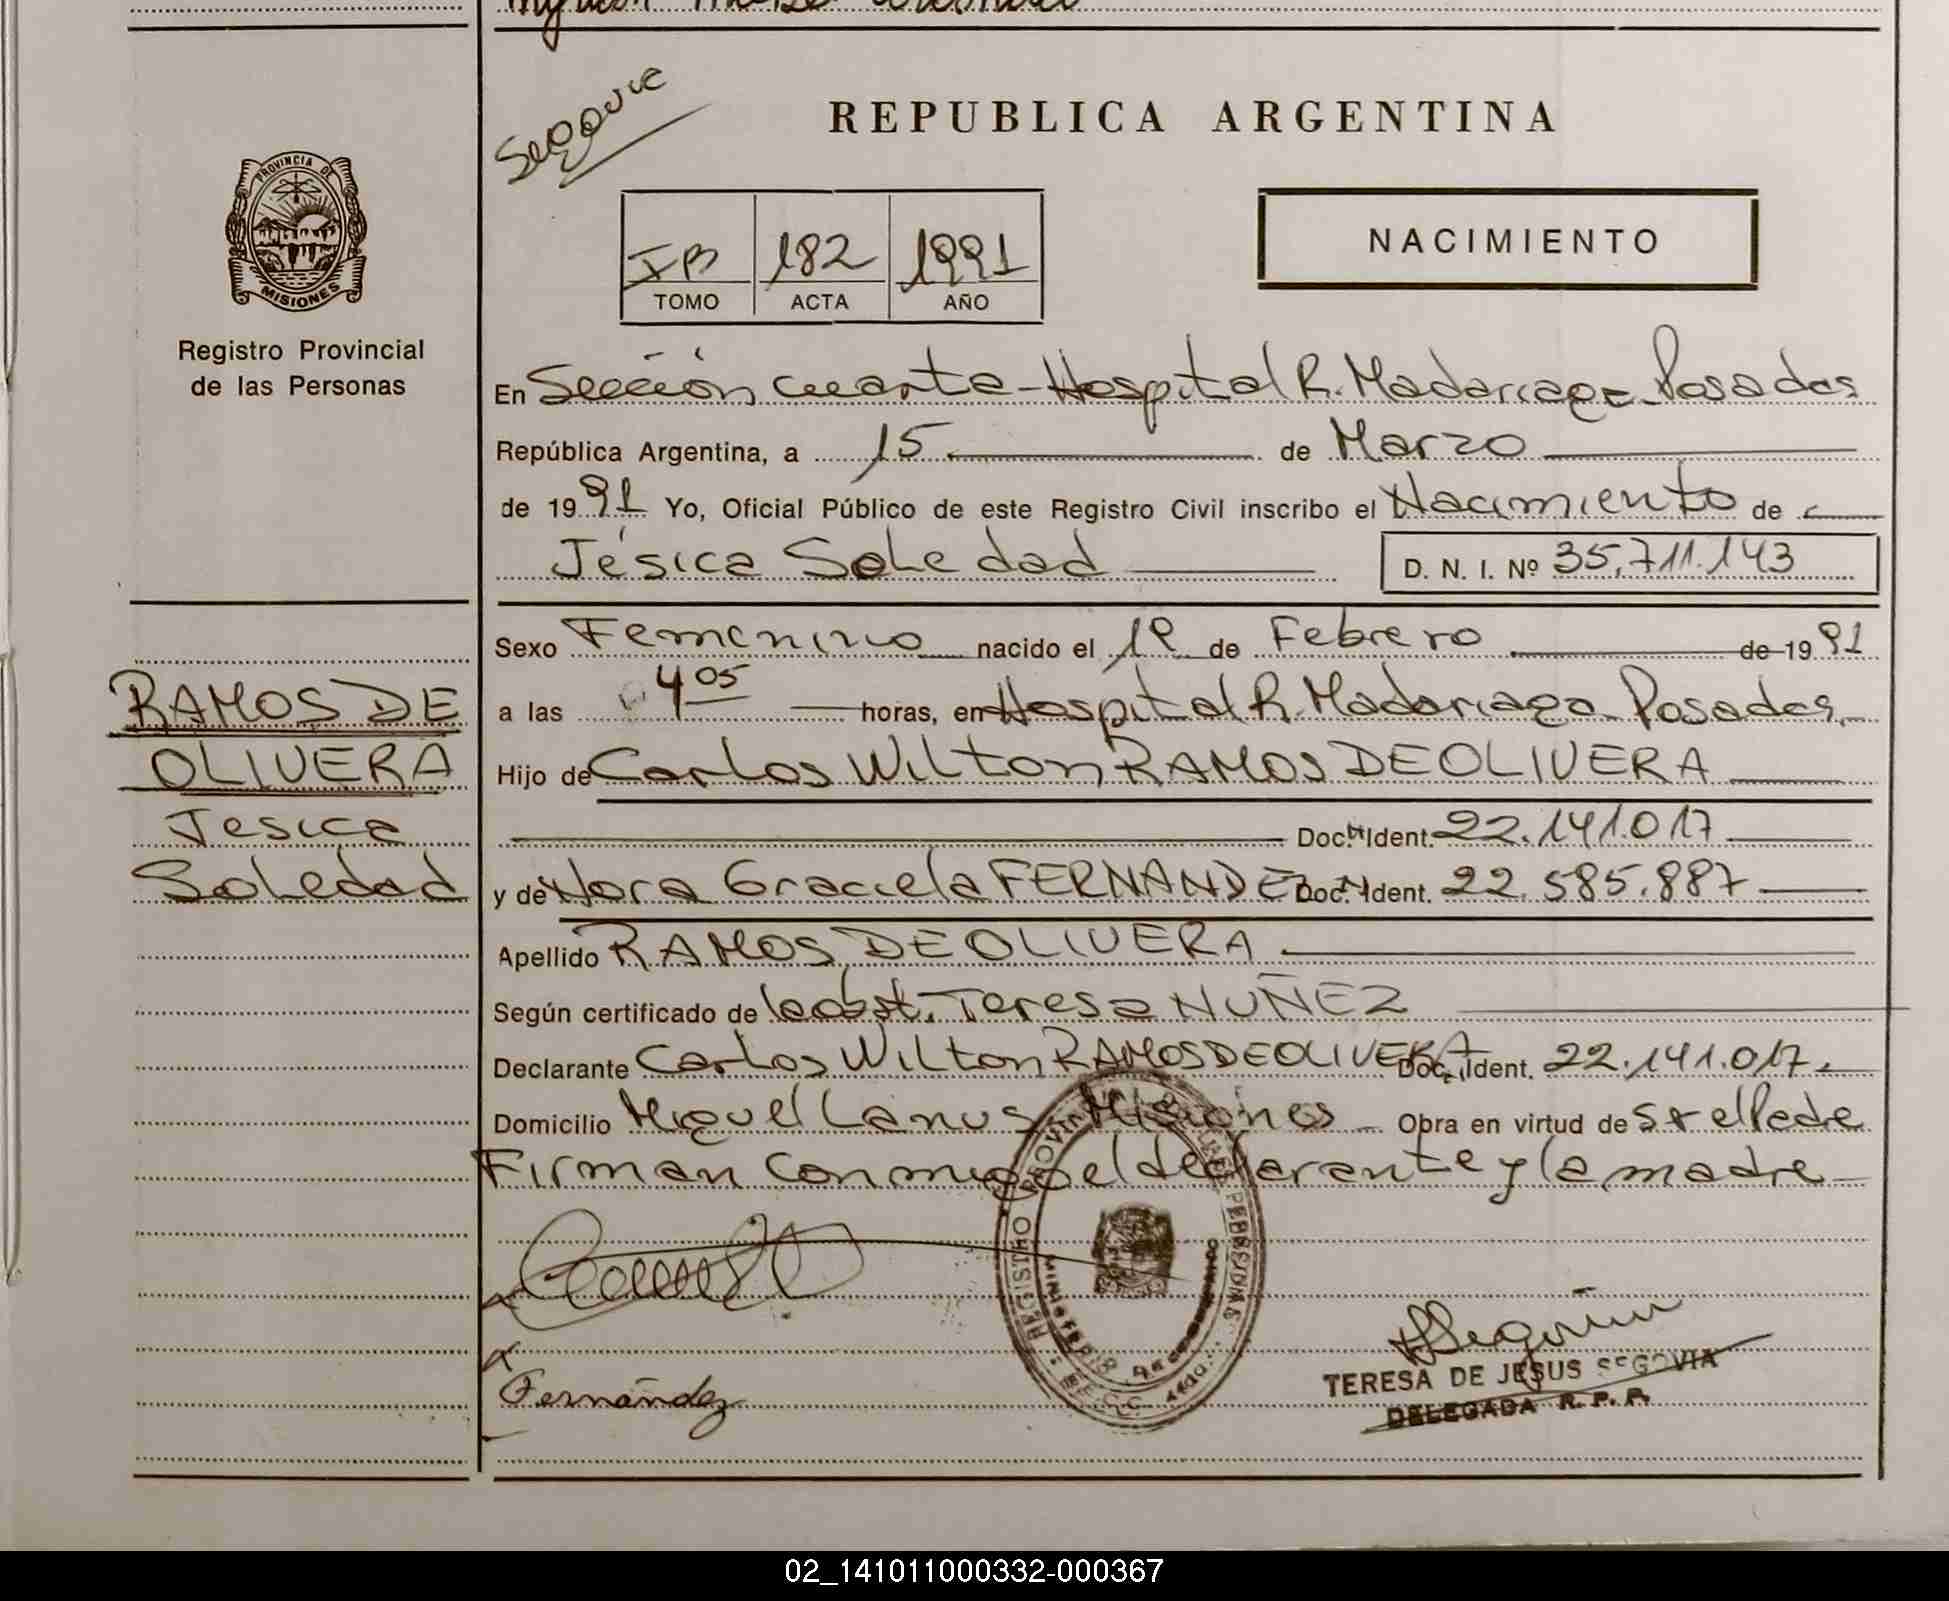 REPUBLICA ARGENTINA
PROVINCIA DE
MISIONES
Registro Provincial
de las Personas
IB 182 1991
TOMO ACTA AÑO
NACIMIENTO
En Sección cuarta - Hospital R. Madariaga - Posadas
República Argentina, a 15 de Marzo
de 1991 Yo, Oficial Público de este Registro Civil inscribo el Nacimiento de
Jésica Soledad D. N. I. Nº 35.711.143
Sexo Femenino nacido el 1º de Febrero de 1991
a las 4 05 horas, en Hospital R. Madariaga Posadas
Hijo de Carlos Wilton RAMOS DE OLIVERA
Doc. Ident. 22.141.017
y de Nora Graciela FERNANDEZ Doc. Ident. 22.585.887
Apellido RAMOS DE OLIVERA
Según certificado de Teresa NUÑEZ
Declarante Carlos Wilton RAMOS DE OLIVERA Doc. Ident. 22.141.017
Domicilio Miguel Lanus Misiones Obra en virtud de
Firman conmigo el declarante y la madre
RAMOS DE
OLIVERA
Jesica
Soledad
Fernández
TERESA DE JESUS SEGOVIA
DELEGADA R. P. P.
02_141011000332-000367